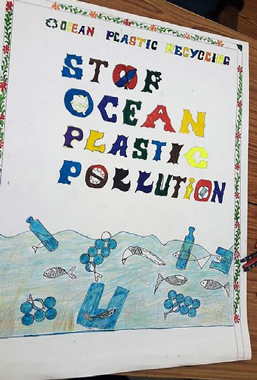 OCEAN PLASTIC RECYCLING
STOP
OCEAN
PLASTIC
POLLUTION